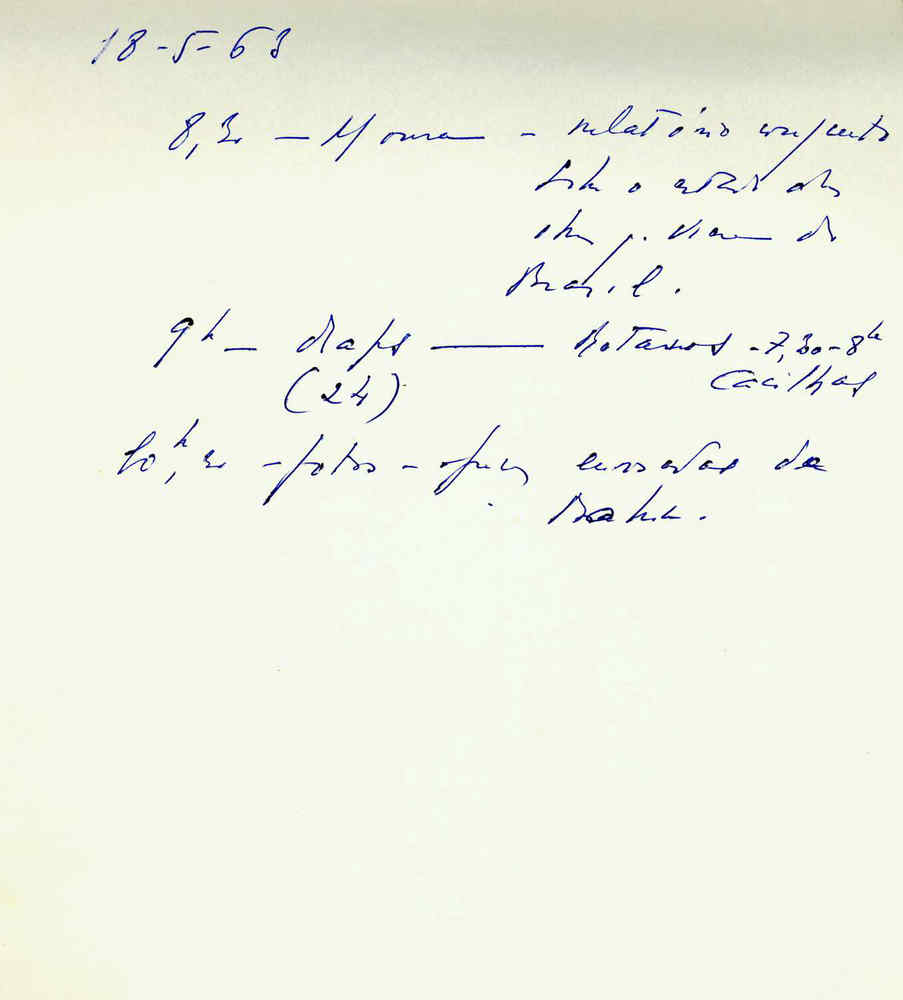 18-5-63
8,30 — Moura — relatório conjunto
sobre o estado das
obras p. viana do
Brasil.
9h — diaps — Rotários - 7,30 - 8h
(24) Cacilhas
10h,30 - fotos - enviadas da
Bahia.